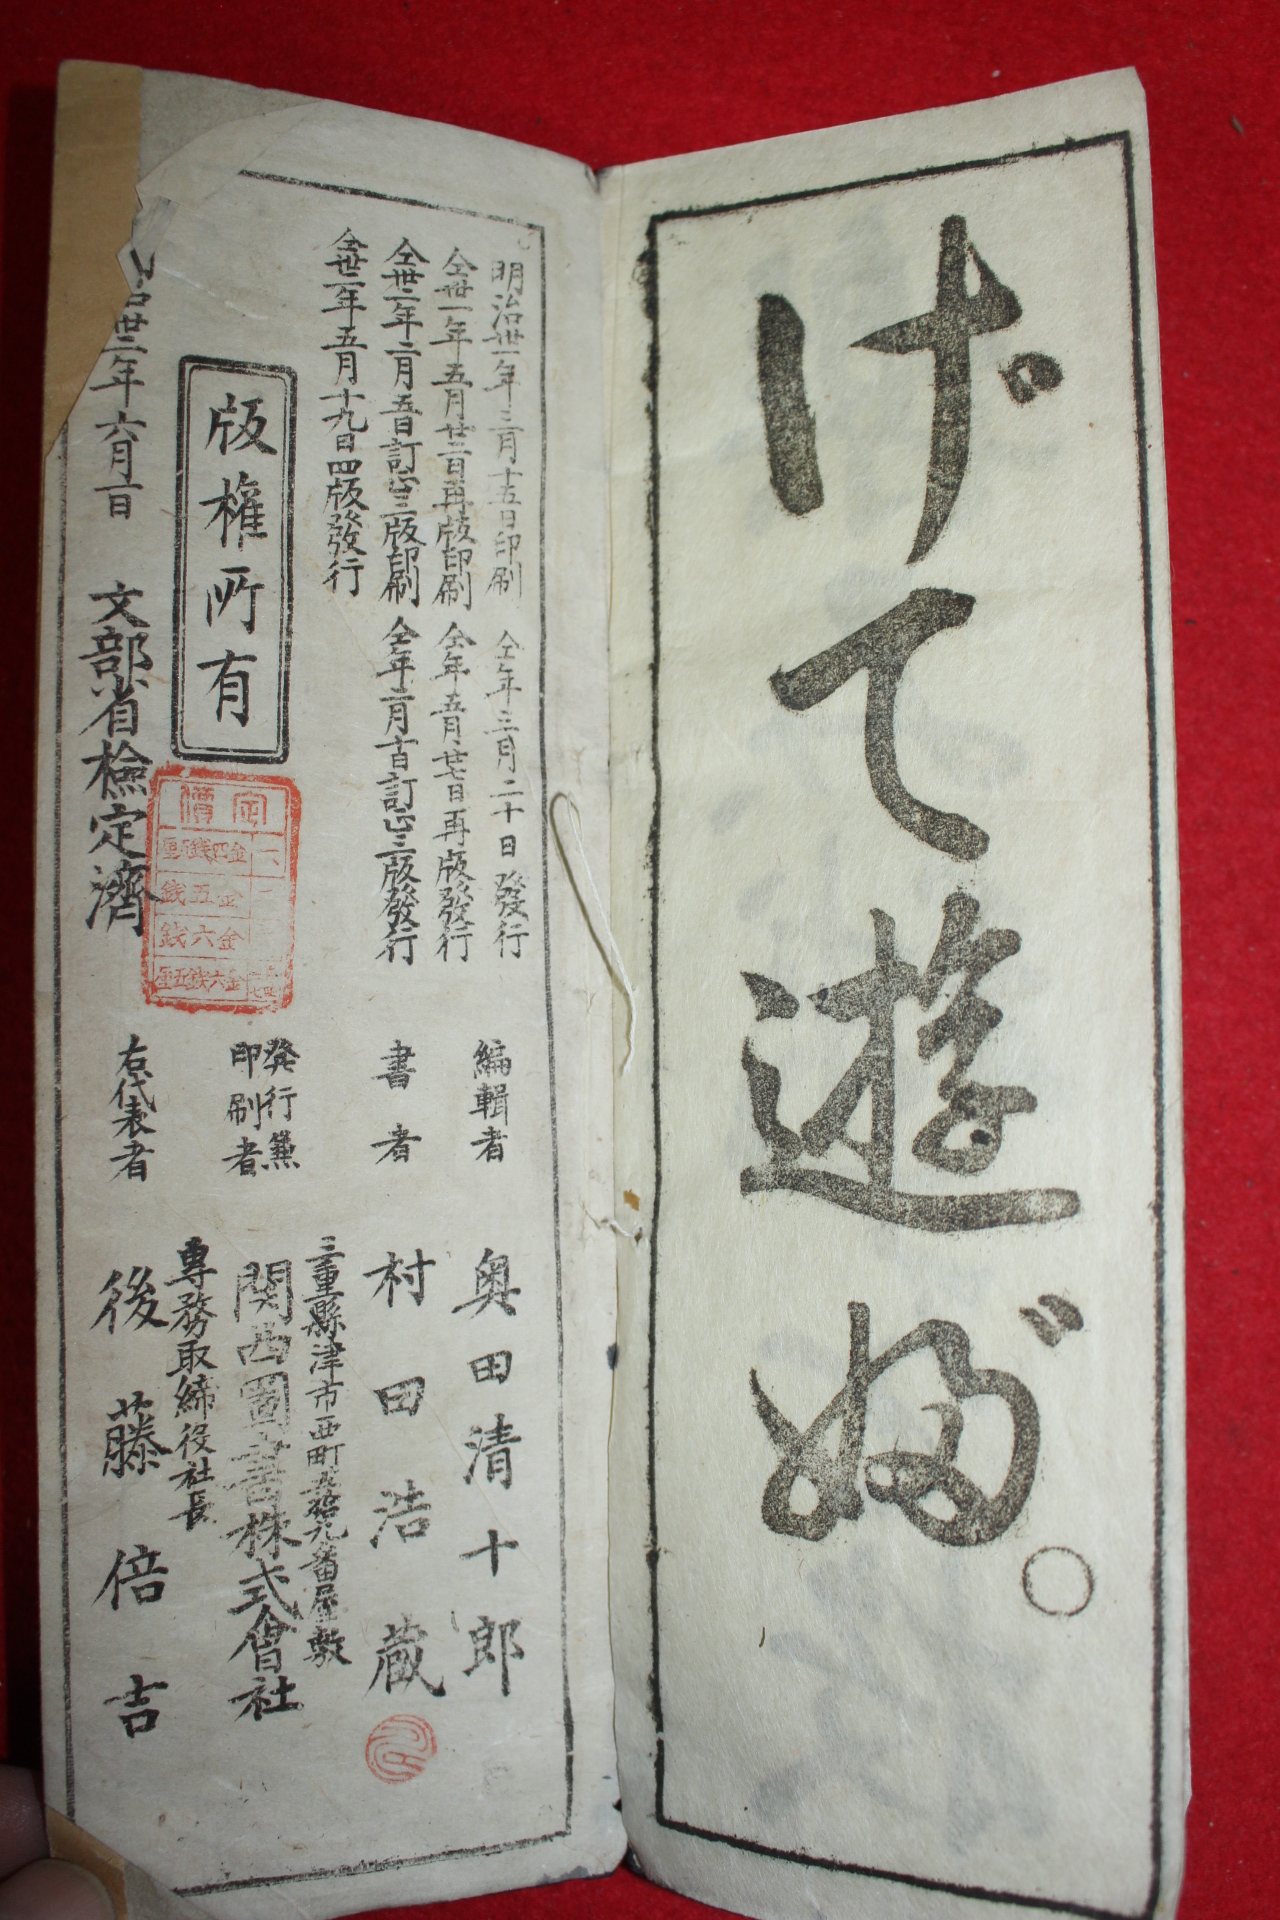 げて遊ぶ。
明治卅一年三月十五日印刷 仝年三月二十日發行
仝卅一年五月廿二日再版印刷 仝年五月廿七日再版發行
仝卅二年二月五日訂正三版印刷 仝年二月十日訂正三版發行
仝卅二年五月十九日四版發行
版權所有
治卅二年六月一日 文部省檢定濟
定價
金四錢五厘
金五錢
金六錢
金六錢五厘
編輯者 奥田清十郎
書者 村田浩藏
三重縣津市西町五拾九番屋敷
發行兼印刷者 関西圖書株式會社
專務取締役社長
右代表者 後藤倍吉